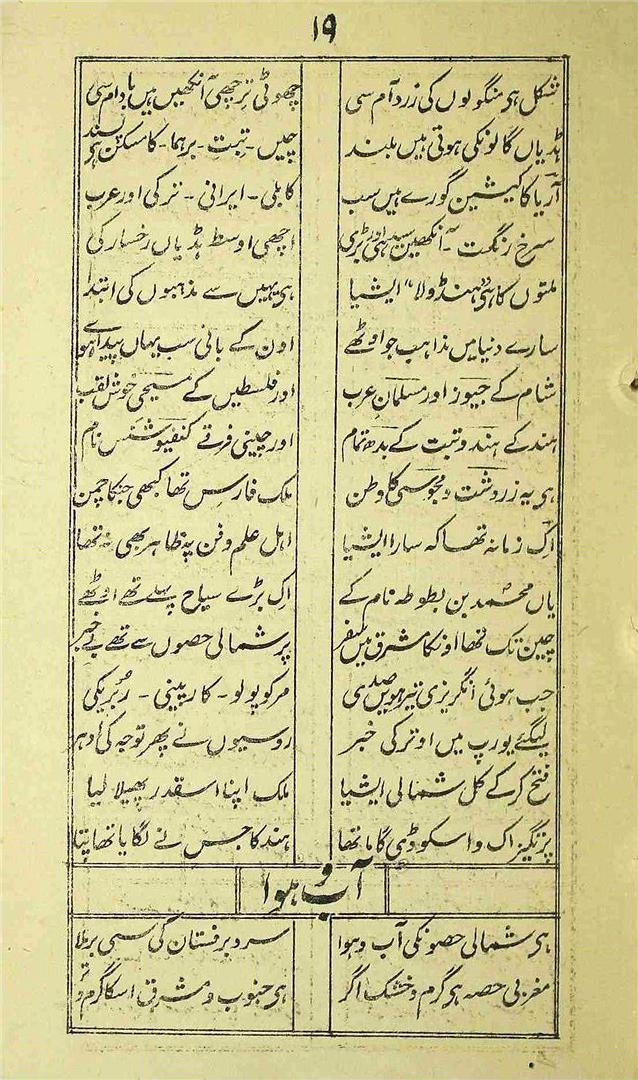 ۱۹
شکل ہی منگولوں کی زرد آم سی چھوٹی ترچھی آنکھیں ہیں بادام سی
ہڈیاں گالونکی ہوتی ہیں بلند چین - تبت - برہما - کا مسکن ہی پسند
آریا کاکیشین گورے ہیں سب کابلی - ایرانی - ترکی اور عرب
سرخ رنگت - آنکھیں سیدھی اور بڑی اچھی اوسط ہڈیاں رخسار کی
ملتوں کا ہی "ہنڈولا" ایشیا ہی یہیں سے مذہبوں کی ابتدا
سارے دنیا میں مذاہب جو اوٹھے اون کے بانی سب یہاں پیدا ہوے
شام کے جیوز اور مسلمان عرب اور فلسطیں کے مسیحی خوش لقب
ہند کے ہندو تبت کے بدھ تمام اور چینی فرقے کنفیوشس نام
ہی یہ زردشت و مجوسی کا وطن ملک فارس تھا کبھی جنکا چمن
اک زمانہ تھا کہ سارا ایشیا اہل علم و فن پہ ظاہر بھی نہ تھا
یاں محمد بن بطوطہ نام کے اک بڑے سیاح پہلے تھے اوٹھے
چین تک تھا اونکا مشرق میں سفر پر شمالی حصوں سے تھے بے خبر
جب ہوئی انگریزی تیرھویں صدی مرکو پولو - کارپینی - ربریکی
لیگئے یورپ میں اوتر کی خبر روسیوں نے پھر توجہ کی ادہر
فتح کر کے کل شمالی ایشیا ملک اپنا اسقدر پھیلا لیا
پرتگیز اک واسکوڈی گاما تھا ہند کا جس نے لگایا تھا پتا
آب و ہوا
ہی شمالی حصونکی آب و ہوا سرد برفستان کی سی برملا
مغربی حصہ ہی گرم و خشک اگر ہی جنوب و مشرق اسکا گرم و تر